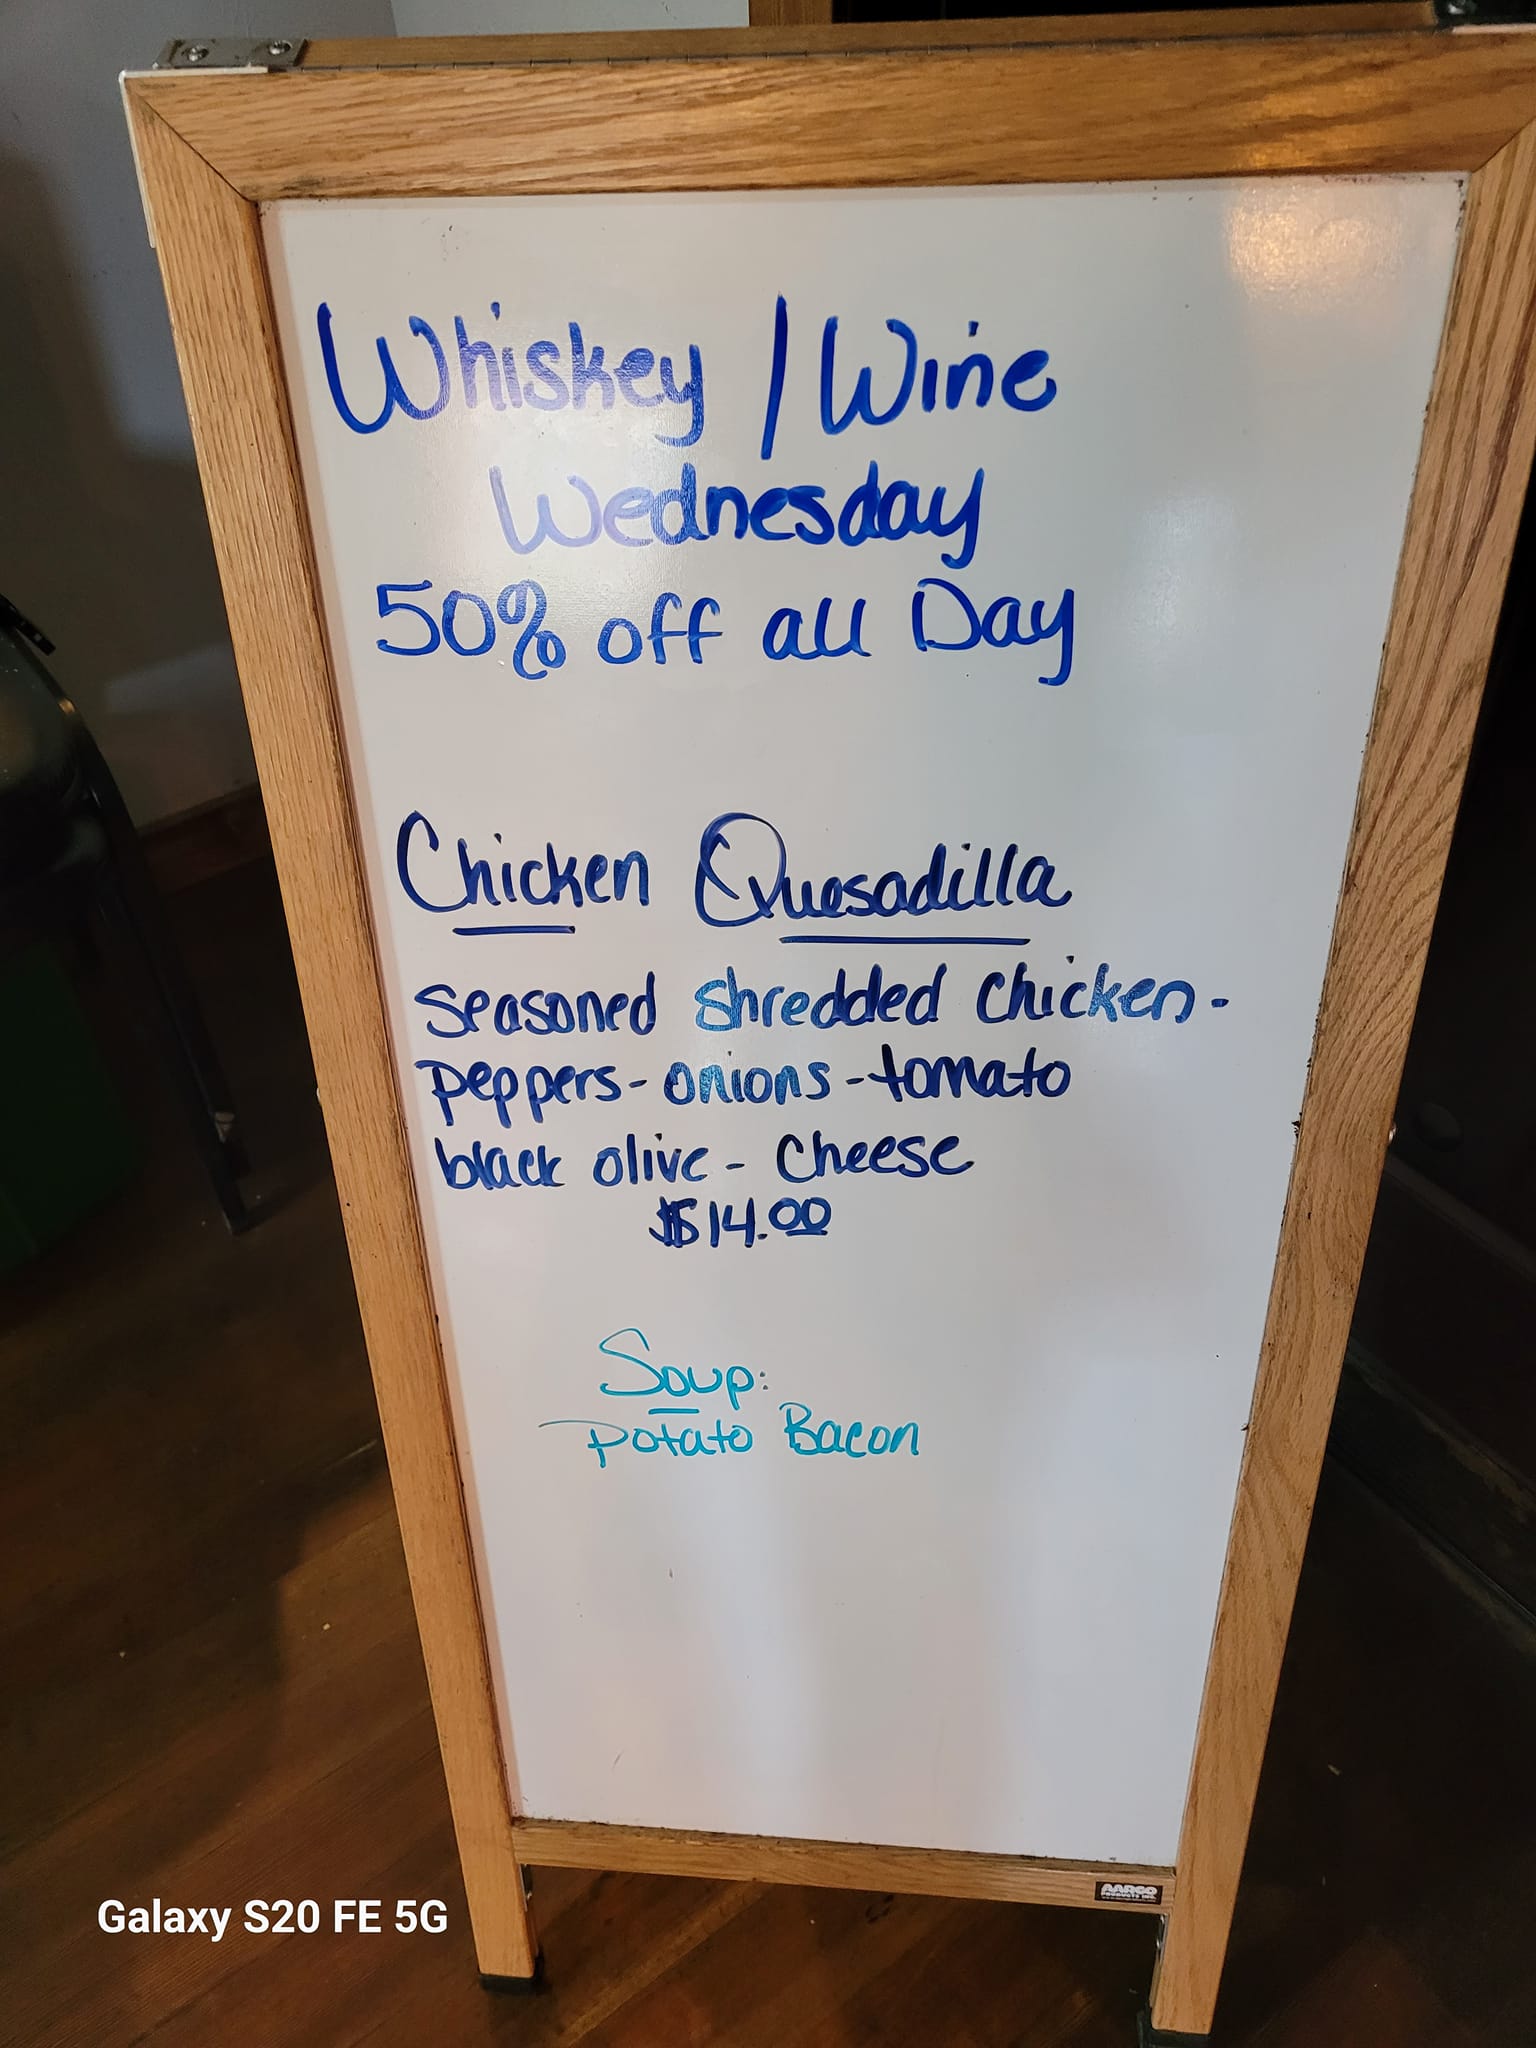 Whiskey / Wine
Wednesday
50% off all Day
Chicken Quesadilla
seasoned shredded chicken-
peppers- onions -tomato
black olive - cheese
$14.00
Soup:
Potato Bacon
AARCO
PRODUCTS INC.
Galaxy S20 FE 5G